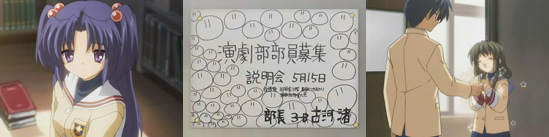 演劇部部員募集
説明会 5月15日
部長 3-B 古河渚